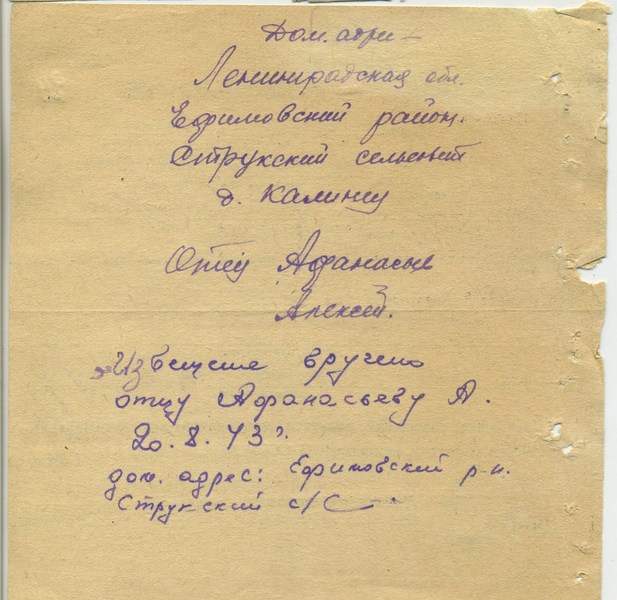 Дом. адри —
Ленинградская обл.
Ефимовский район.
Струкский сельсовет
д. Калинец
Отец Афанасьев
Алексей.
Извещение вручено
отцу Афанасьеву А.
20.8.43 г.
дом. адрес: Ефимовский р-н.
Струкский с/С